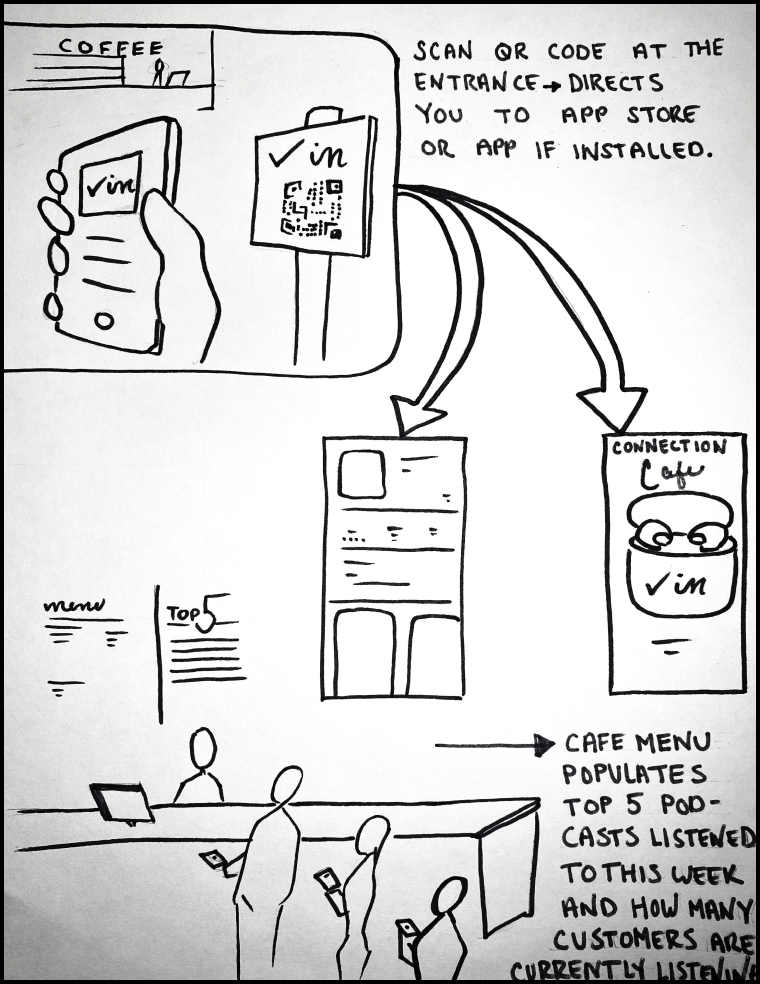 COFFEE
SCAN QR CODE AT THE
ENTRANCE → DIRECTS
YOU TO APP STORE
OR APP IF INSTALLED.
✓in
✓in
CONNECTION
Cafe
✓in
menu
TOP 5
CAFE MENU
POPULATES
TOP 5 POD-
CASTS LISTENED
TO THIS WEEK
AND HOW MANY
CUSTOMERS ARE
CURRENTLY LISTENING